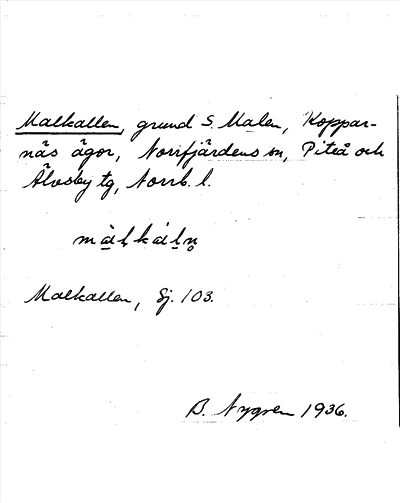 Malkallen, grund S. Malen, Koppar-
näs ägor, Norrfjärdens sn, Piteå och
Älvsby tg, Norrb. l.
màḷkáḷn̥
Malkallen, Sj. 103.
B. Nygren 1936.